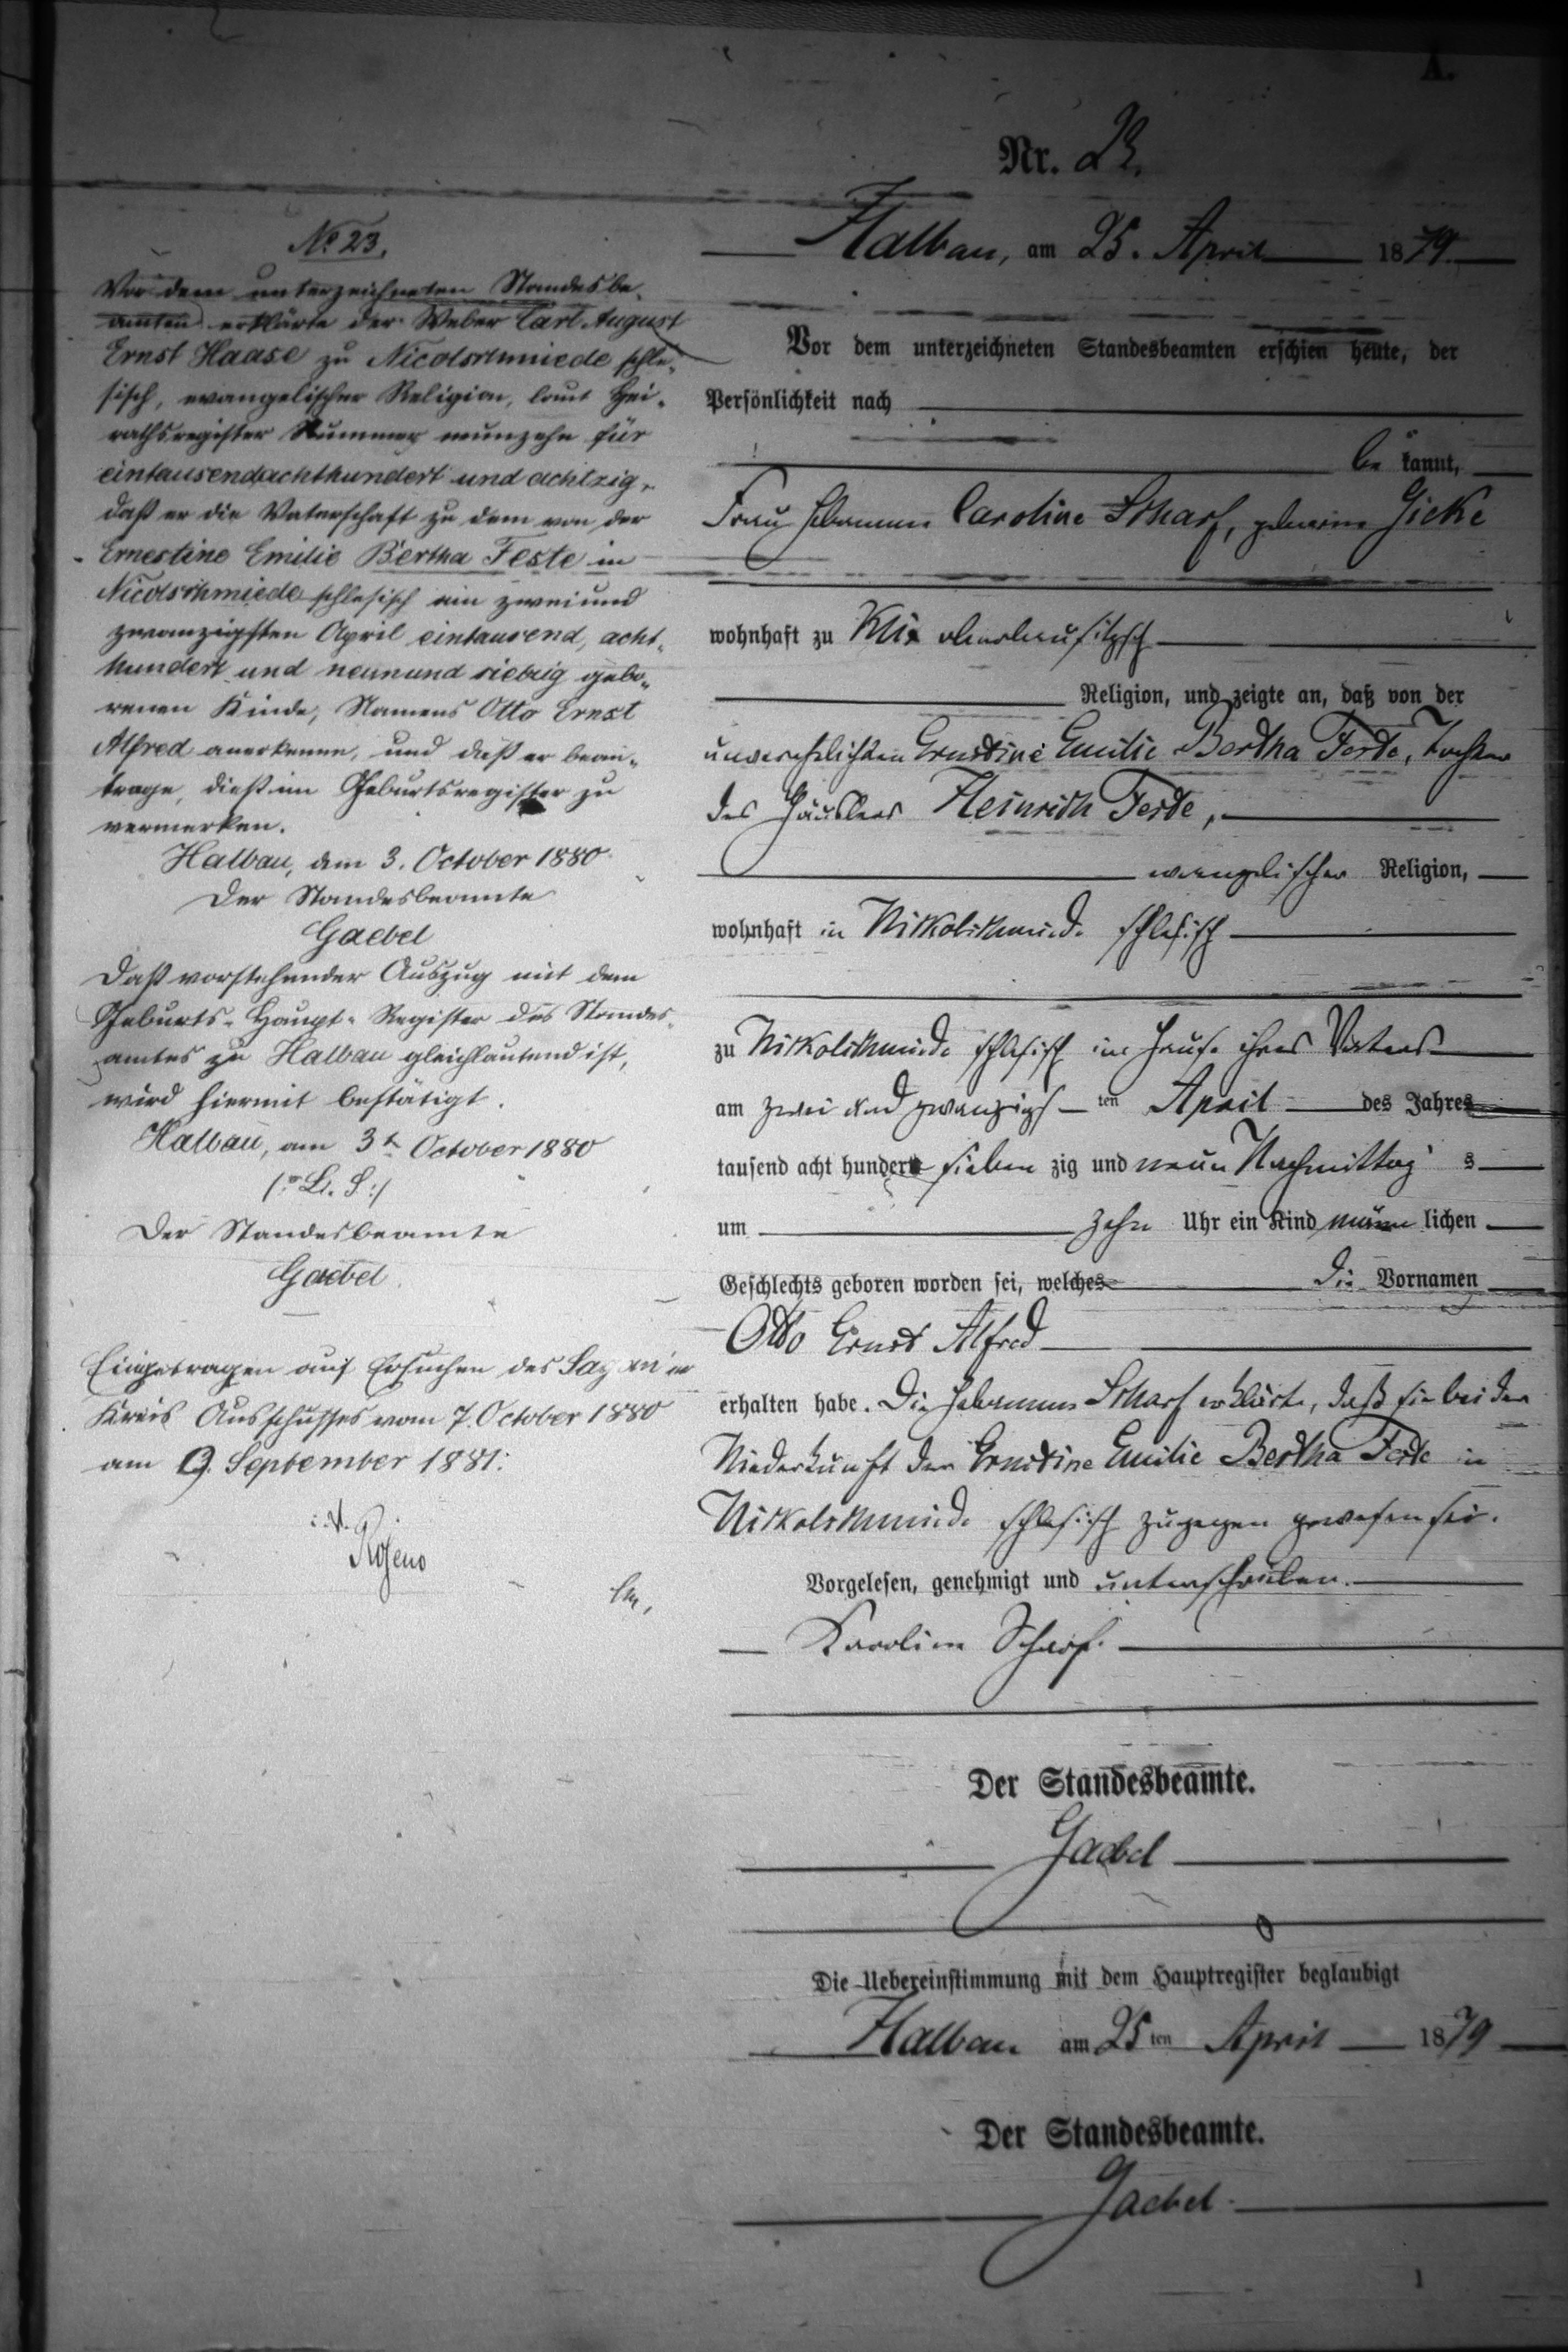 A.
Nr. 23.
Halbau, am 25. April 1879.
Vor dem unterzeichneten Standesbeamten erschien heute, der
Persönlichkeit nach
be kannt,
Frau Hebamme Caroline Scharf, geborene Gicke
wohnhaft zu Klix oberlausitzisch
Religion, und zeigte an, daß von der
unverehelichten Ernestine Emilie Bertha Feste, Tochter
des Häuslers Heinrich Feste,
evangelischer Religion,
wohnhaft in Nikolschmiede schlesisch
zu Nikolschmiede schlesisch im Hause ihres Vaters
am zwei und zwanzigs ten April des Jahres
tausend acht hundert sieben zig und neun Nachmittag s
um zehn Uhr ein Kind männ lichen
Geschlechts geboren worden sei, welches die Vornamen
Otto Ernst Alfred
erhalten habe. Die Hebamme Scharf erklärte, daß sie bei der
Niederkunft der Ernestine Emilie Bertha Feste in
Nikolschmiede schlesisch zugegen gewesen sei.
Vorgelesen, genehmigt und unterschrieben.
Karoline Scharf.
Der Standesbeamte.
Gaebel
Die Uebereinstimmung mit dem Hauptregister beglaubigt
Halbau am 25 ten April 1879
Der Standesbeamte.
Gaebel.
No 23.
Vor dem unterzeichneten Standesbe-
amten erklärte der Weber Carl August
Ernst Haase zu Nicolschmiede schle-
sisch, evangelischer Religion, laut Hei-
rathsregister Nummer neunzehn für
eintausendachthundert und achtzig,
daß er die Vaterschaft zu dem von der
Ernestine Emilie Bertha Feste in
Nicolschmiede schlesisch am zweiund
zwanzigsten April eintausend, acht-
hundert und neunund siebzig gebo-
renen Kinde, Namens Otto Ernst
Alfred anerkenne, und daß er bean-
trage, dieß im Geburtsregister zu
vermerken.
Halbau, am 3. October 1880.
Der Standesbeamte
Gaebel
Daß vorstehender Auszug mit dem
Geburts-Haupt-Register des Standes-
amtes zu Halbau gleichlautend ist,
wird hiermit bestätigt.
Halbau, am 3t October 1880
(: L. S :)
Der Standesbeamte
Gaebel.
Eingetragen auf Ersuchen des Sagan'er
Kreis Ausschusses vom 7. October 1880
am 9. September 1881:
i. V.
Roseno